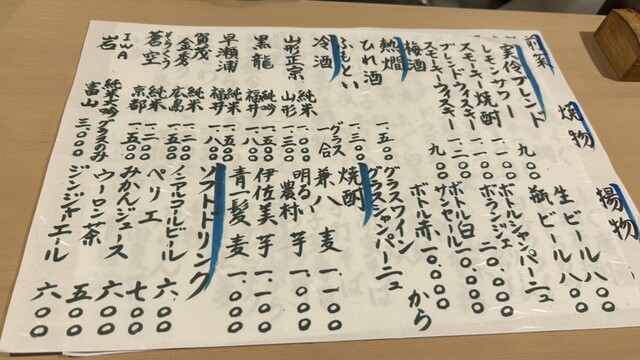 揚物
焼物
前菜
生ビール 八〇〇
瓶ビール 八〇〇
ブレンド 九〇〇
レモンサワー
スモーキー焼酎 一.一〇〇
ブレンドウィスキー 一.二〇〇
スモーキーウィスキー 九〇〇
ボトルシャンパーニュ
ボランジェ 二〇.〇〇〇
ボトル白
サンセール 一〇.〇〇〇
ボトル赤 一〇.〇〇〇から
梅酒
熱燗
ひれ酒 一.五〇〇
グラスワイン
グラスシャンパーニュ
冷酒 グラス 一合
ふもとい 一.三〇〇
山形正宗 純米 山形 一.〇〇〇
黒龍 純吟 福井 一.五〇〇
早瀬浦 純米 福井 一.八〇〇
賀茂金秀 純米 広島 一.二〇〇
蒼空 そうくう 純米 京都 一.五〇〇
IWA 岩 純米大吟 富山 グラスのみ 三.〇〇〇
焼酎
兼八 麦 一.一〇〇
明るい農村 芋 一.〇〇〇
伊佐美 芋 一.一〇〇
青一髪 麦 一.〇〇〇
ソフトドリンク
ノンアルコールビール 六〇〇
ペリエ 七〇〇
みかんジュース 六〇〇
ウーロン茶 五〇〇
ジンジャーエール 六〇〇